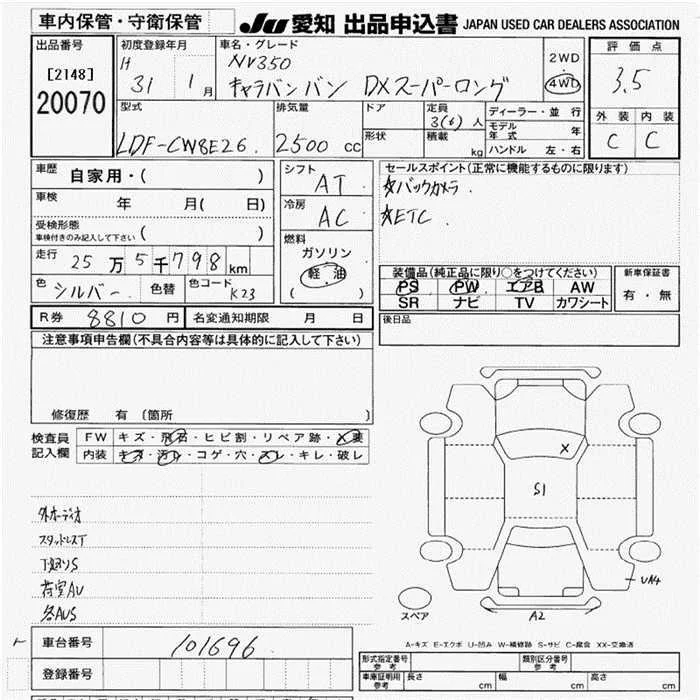 車内保管・守衛保管
JU 愛知 出品申込書 JAPAN USED CAR DEALERS ASSOCIATION
出品番号
[2148]
20070
初度登録年月
H 31 1月
車名・グレード
NV350
キャラバンバン DXスーパーロング
2WD
4WD
評価点
3.5
外装 内装
C C
型式
LDF-CW8E26.
排気量
2500 cc
ドア
形状
定員
3(6)人
積載
kg
ディーラー・並行
モデル年式 年
ハンドル 左・右
車歴
自家用・( )
車検
年 月( 日)
受検形態
車検付きのみ記入して下さい ( )
走行
25万5千798km
色
シルバー
色替
色コード
K23
シフト
AT
冷房
AC
燃料
ガソリン
軽油
( )
セールスポイント(正常に機能するものに限ります)
☆バックカメラ.
☆ETC.
装備品(純正品に限り○をつけてください)
PS PW エアB AW
SR ナビ TV カワシート
新車保証書
有・無
R券 8810円 名変通知期限 月 日
後日品
注意事項申告欄(不具合内容等は具体的に記入して下さい)
修復歴 有 〔箇所 〕
検査員
記入欄
FW キズ・飛石・ヒビ割・リペア跡・X要
内装 キズ・汚れ・コゲ・穴・スレ・キレ・破レ
外オーディオ
スタッドレスT
下廻りS
荷室AU
各AUS
X
S1
UA4
A2
スペア
A-キズ E-エクボ U-凹み W-補修跡 S-サビ C-腐食 XX-交換済
車台番号 101696
登録番号
形式指定番号
参考
類別区分番号
参考
車庫証明用
参考
長さ cm 幅 cm 高さ cm